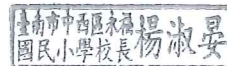 臺南市中西區永福
國民小學校長楊淑晏